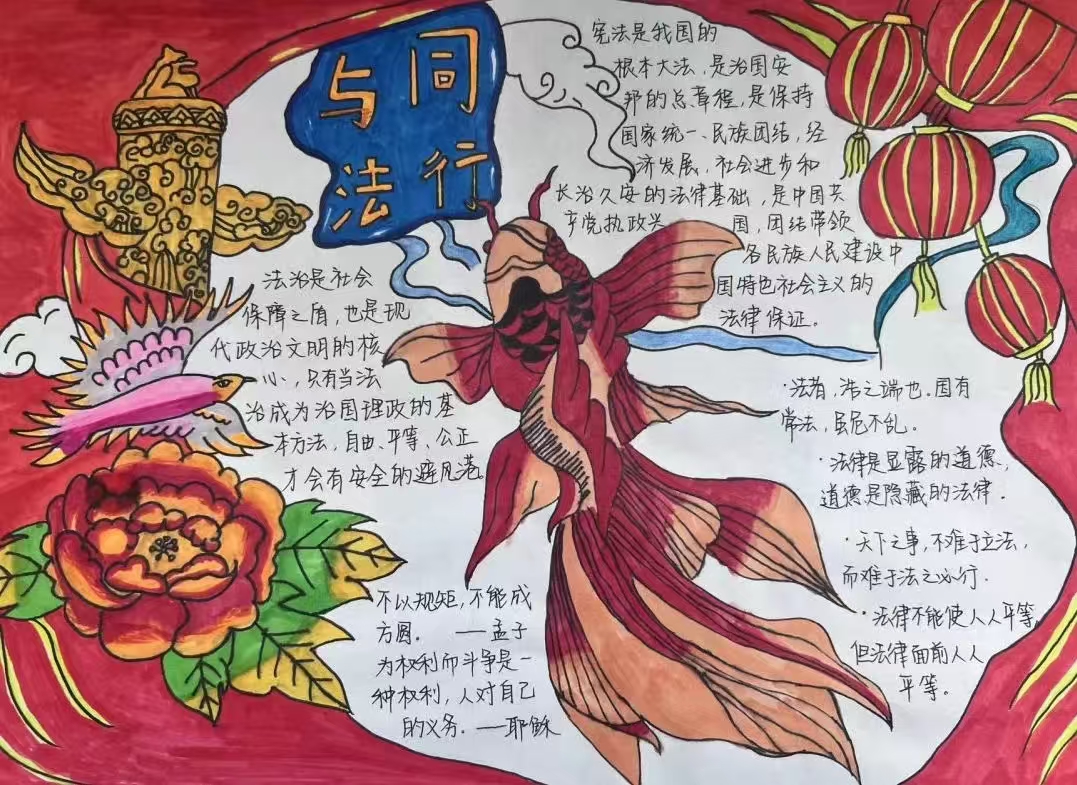 与法
同行
宪法是我国的
根本大法，是治国安
邦的总章程，是保持
国家统一、民族团结，经
济发展，社会进步和
长治久安的法律基础，是中国共
产党执政兴国，团结带领
各民族人民建设中
国特色社会主义的
法律保证。
法治是社会
保障之盾，也是现
代政治文明的核
心，只有当法
治成为治国理政的基
本方法，自由、平等、公正
才会有安全的避风港。
·法者，浩之端也.国有
常法，虽危不乱.
·法律是显露的道德，
道德是隐藏的法律.
·天下之事，不难于立法，
而难于法之必行.
·法律不能使人人平等，
但法律面前人人
平等。
不以规矩，不能成
方圆. ——孟子
为权利而斗争是一
种权利，人对自己
的义务. ——耶稣